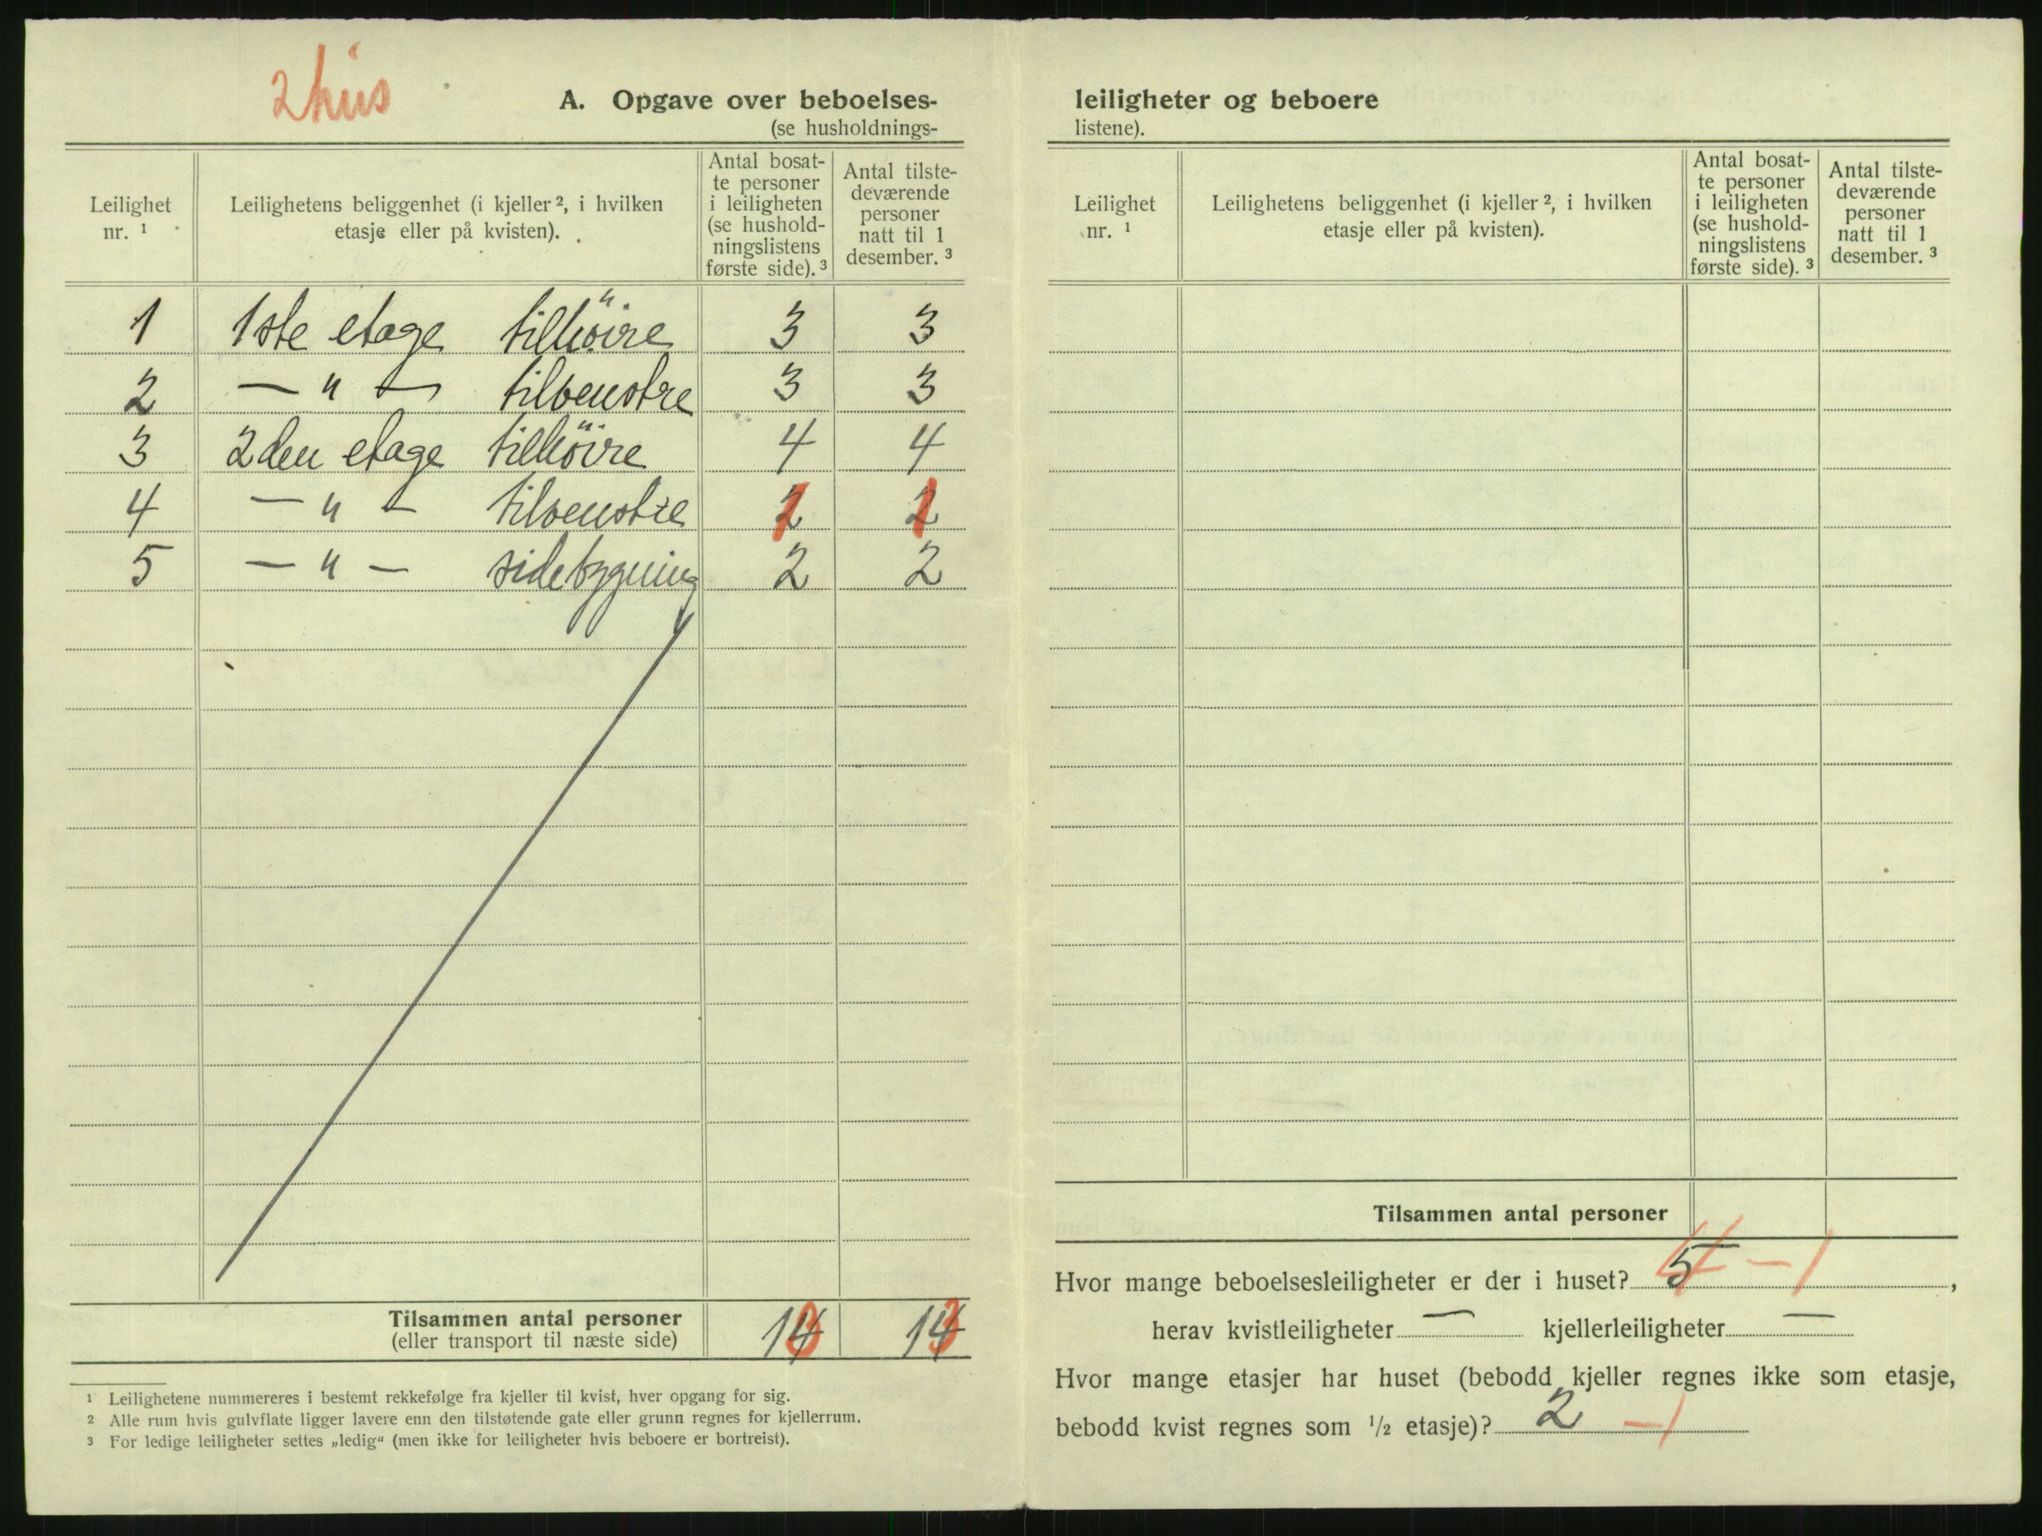 2 hus
A. Opgave over beboelses-
(se husholdnings-
Leilighet nr. ¹
Leilighetens beliggenhet (i kjeller ², i hvilken etasje eller på kvisten).
Antal bosat-
te personer
i leiligheten
(se hushold-
ningslistens
første side). ³
Antal tilste-
deværende
personer
natt til 1
desember. ³
1 1ste etage tilhöire 3 3
2 — " — tilvenstre 3 3
3 2den etage tilhöire 4 4
4 — " — tilvenstre 2 1 2 1
5 — " — sidebygning 2 2
Tilsammen antal personer 14 3 14 3
(eller transport til næste side)
¹ Leilighetene nummereres i bestemt rekkefølge fra kjeller til kvist, hver opgang for sig.
² Alle rum hvis gulvflate ligger lavere enn den tilstøtende gate eller grunn regnes for kjellerrum.
³ For ledige leiligheter settes „ledig“ (men ikke for leiligheter hvis beboere er bortreist).
leiligheter og beboere
listene).
Leilighet nr. ¹
Leilighetens beliggenhet (i kjeller ², i hvilken etasje eller på kvisten).
Antal bosat-
te personer
i leiligheten
(se hushold-
ningslistens
første side). ³
Antal tilste-
deværende
personer
natt til 1
desember. ³
Tilsammen antal personer
Hvor mange beboelsesleiligheter er der i huset? 5 4 – 1,
herav kvistleiligheter — kjellerleiligheter —
Hvor mange etasjer har huset (bebodd kjeller regnes ikke som etasje,
bebodd kvist regnes som ¹/₂ etasje)? 2 – 1